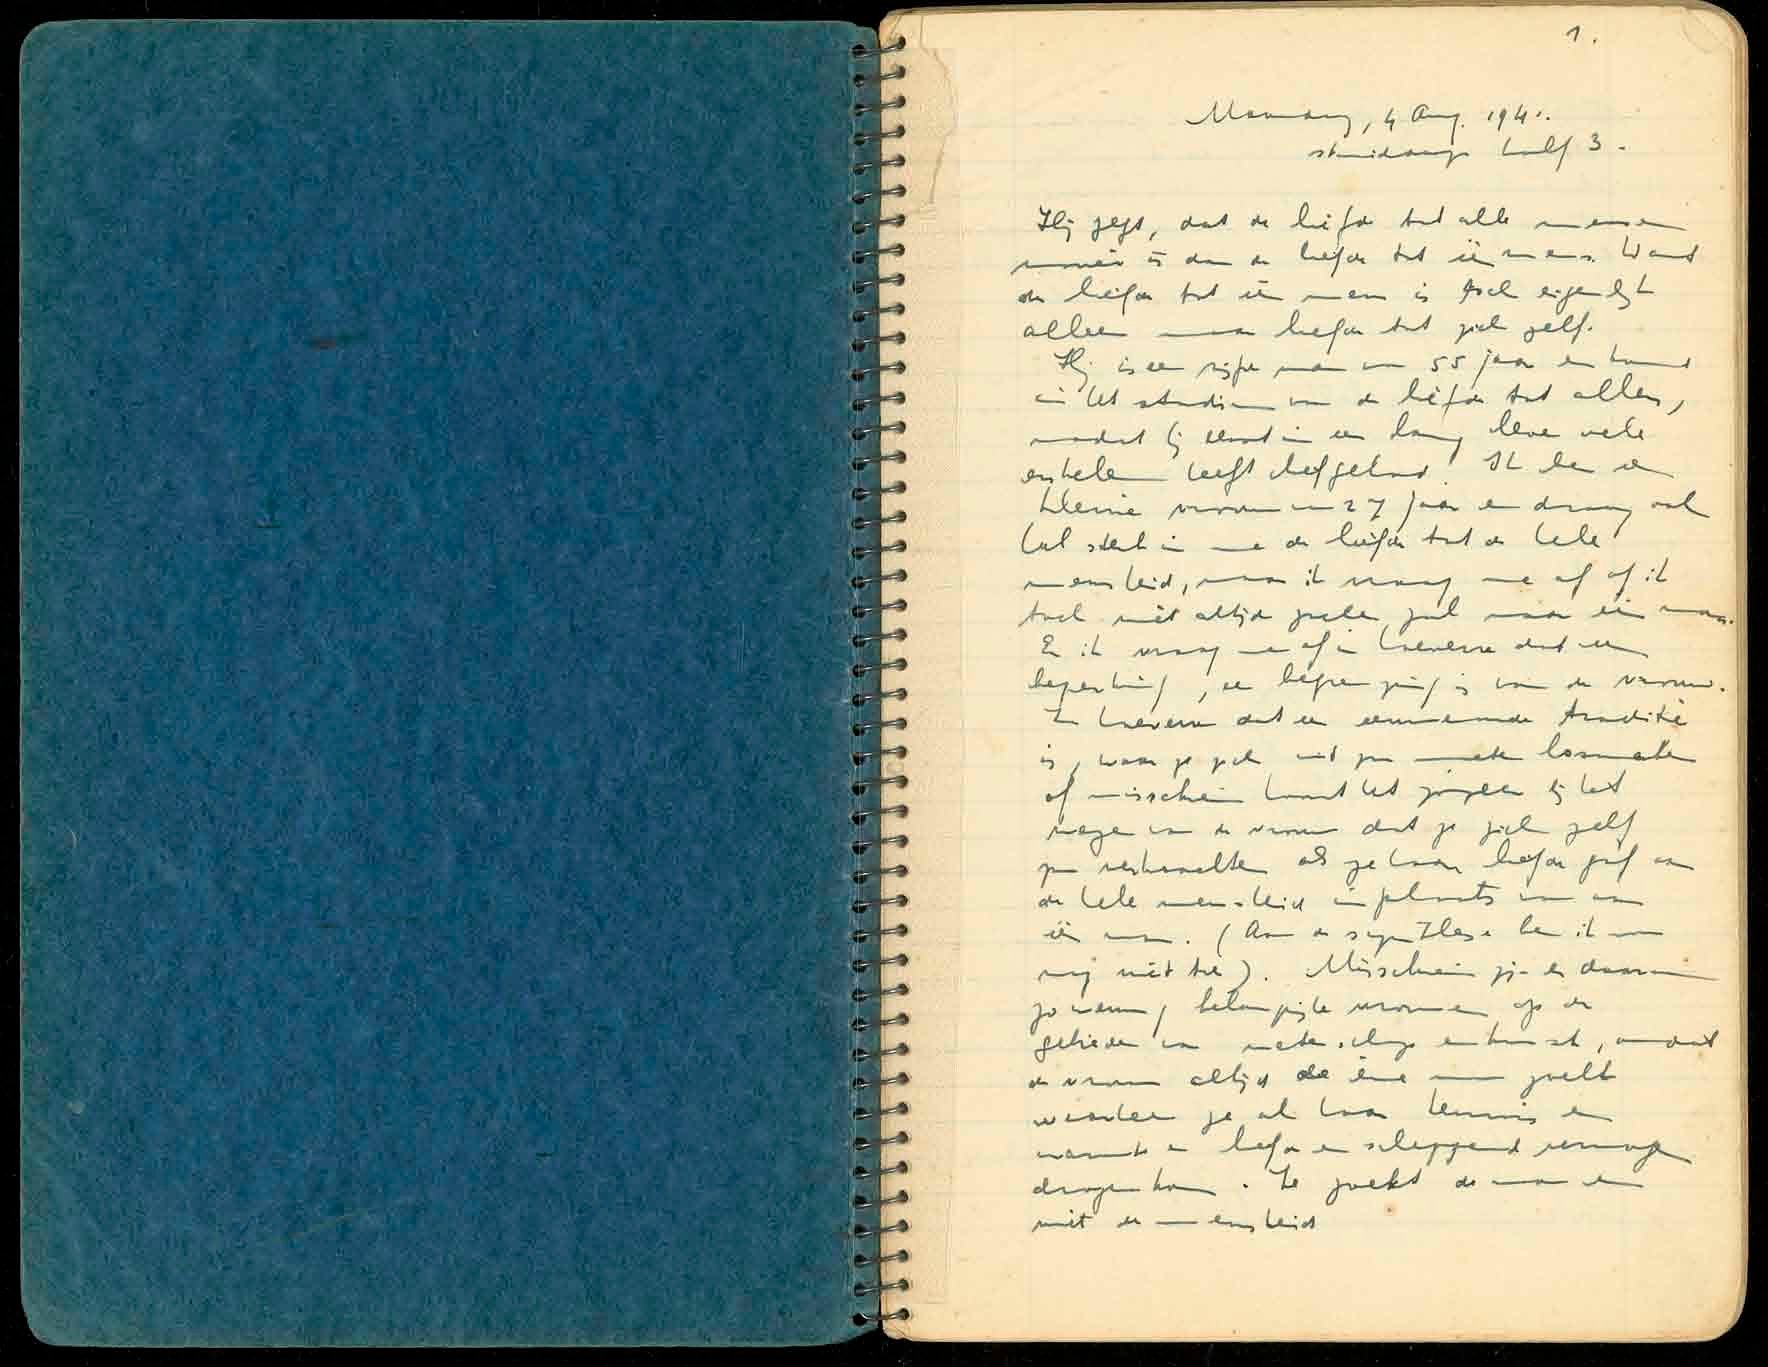 1.
Maandag, 4 Aug. 1941.
's middags half 3.
Hij zegt, dat de liefde tot alle mensen
mooier is dan de liefde tot één mens. Want
de liefde tot één mens is toch eigenlijk
alleen maar liefde tot zich zelf.
Hij is een rijpe man van 55 jaar en komt
in het stadium van de liefde tot allen,
nadat hij eerst in een lang leven vele
enkelen heeft liefgehad. Ik ben een
kleine vrouw van 27 jaar en draag ook
heel sterk in me de liefde tot de hele
mensheid, maar ik vraag me af of ik
toch niet altijd zoeken zal naar één man.
En ik vraag me af in hoeverre dat een
beperking, een begrenzing is van de vrouw.
In hoeverre dat een eeuwenoude traditie
is, waar ze zich uit zou moeten losmaken
of misschien hoort het zozeer bij het
wezen van de vrouw dat ze zich zelf
zou verkrachten als ze haar liefde gaf aan
de hele mensheid inplaats van aan
één man. (Aan de synthese ben ik nog
nog niet toe). Misschien zijn er daarom
zo weinig belangrijke vrouwen op de
gebieden van wetenschap en kunst, omdat
de vrouw altijd de éne man zoekt
waarheen ze al haar kennis en
warmte en liefde en scheppend vermogen
dragen kan. Ze zoekt de man en
niet de mensheid